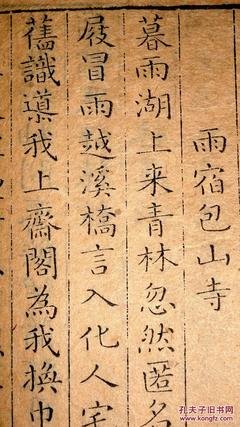 雨宿包山寺
暮雨湖上来青林忽然匿名
屐冒雨越溪橋言入化人宇
舊識導我上齋閣為我換巾
孔夫子旧书网